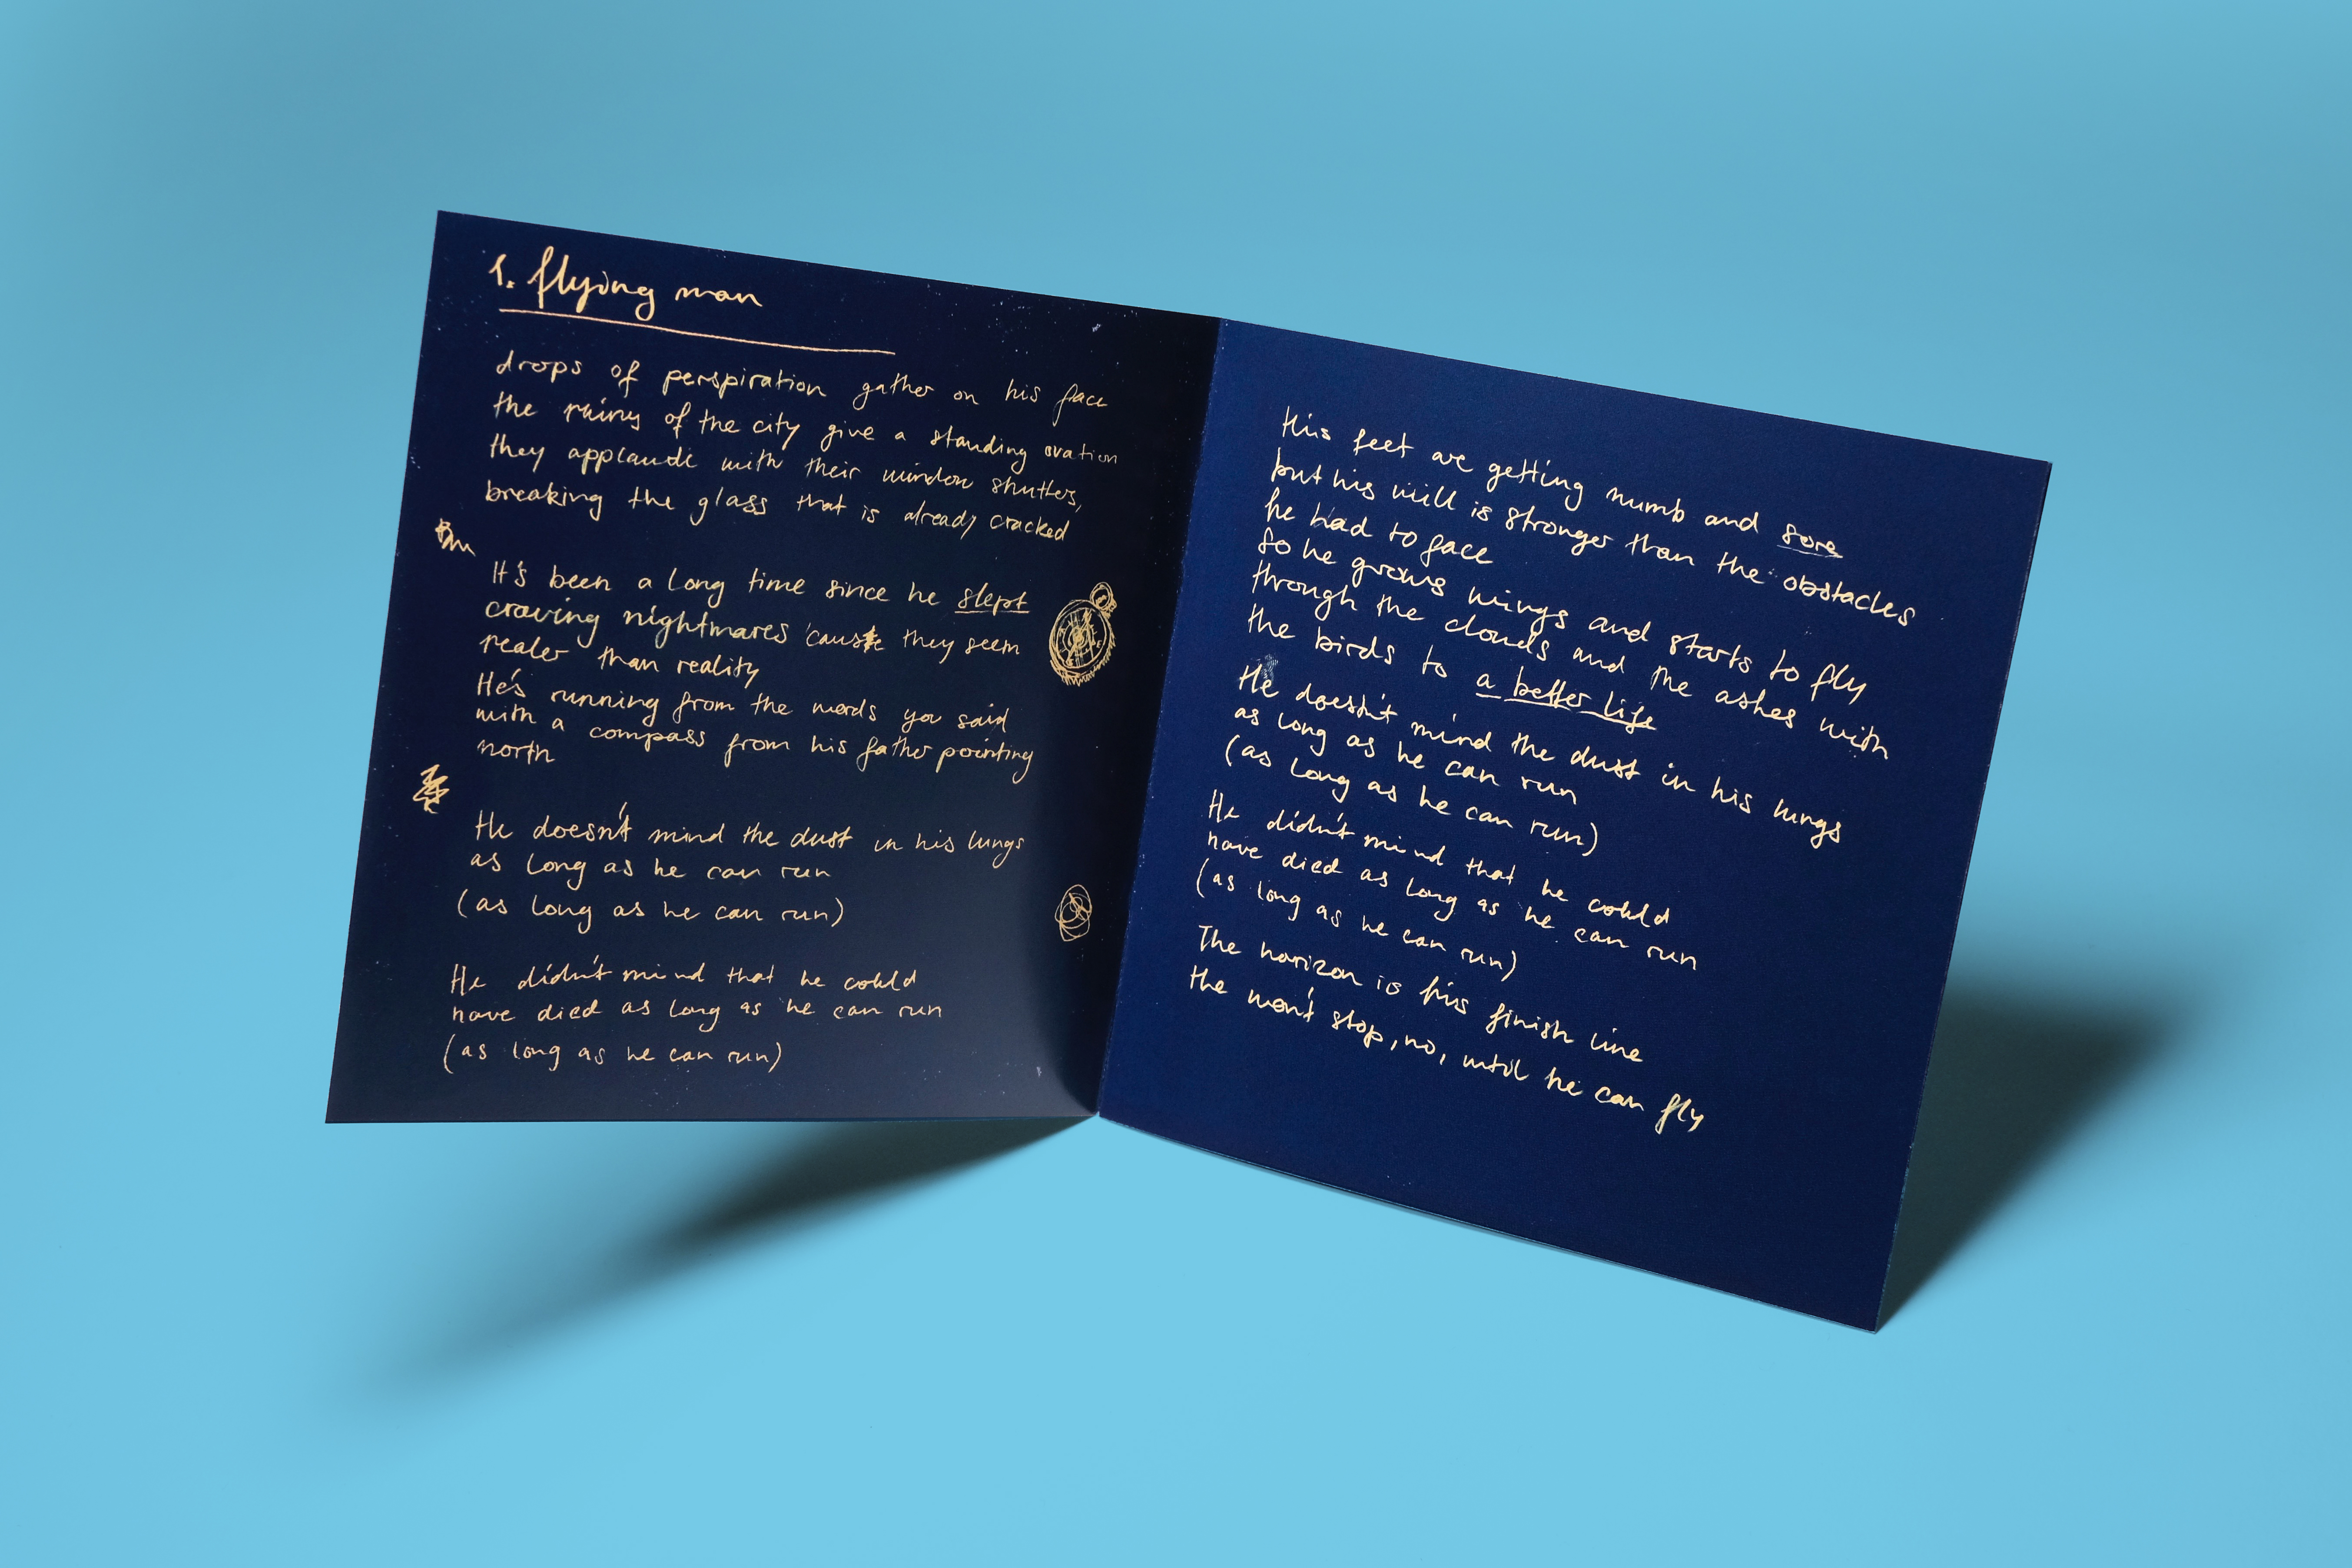 1. flying man
drops of perspiration gather on his face
the ruins of the city give a standing ovation
they applaude with their window shutters,
breaking the glass that is already cracked
It's been a long time since he slept
craving nightmares 'cause they seem
realer than reality
He's running from the words you said
with a compass from his father pointing
north
He doesn't mind the dust in his lungs
as long as he can run
(as long as he can run)
He didn't mind that he could
have died as long as he can run
(as long as he can run)
His feet are getting numb and sore
but his will is stronger than the obstacles
he had to face
So he grows wings and starts to fly
through the clouds and the ashes with
the birds to a better life
He doesn't mind the dust in his lungs
as long as he can run
(as long as he can run)
He didn't mind that he could
have died as long as he can run
(as long as he can run)
The horizon is his finish line
He won't stop, no, until he can fly